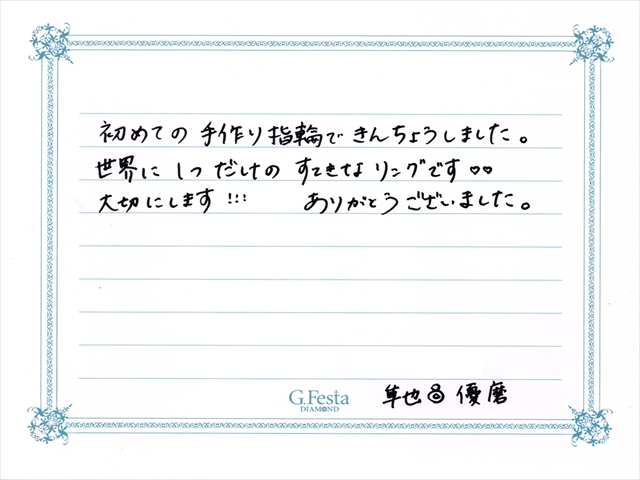 初めての 手作り指輪で きんちょうしました。
世界に 1つ だけの すてきな リングです ♡♡
大切にします !!! ありがとうございました。
G.Festa
DIAMOND
隼也 優磨